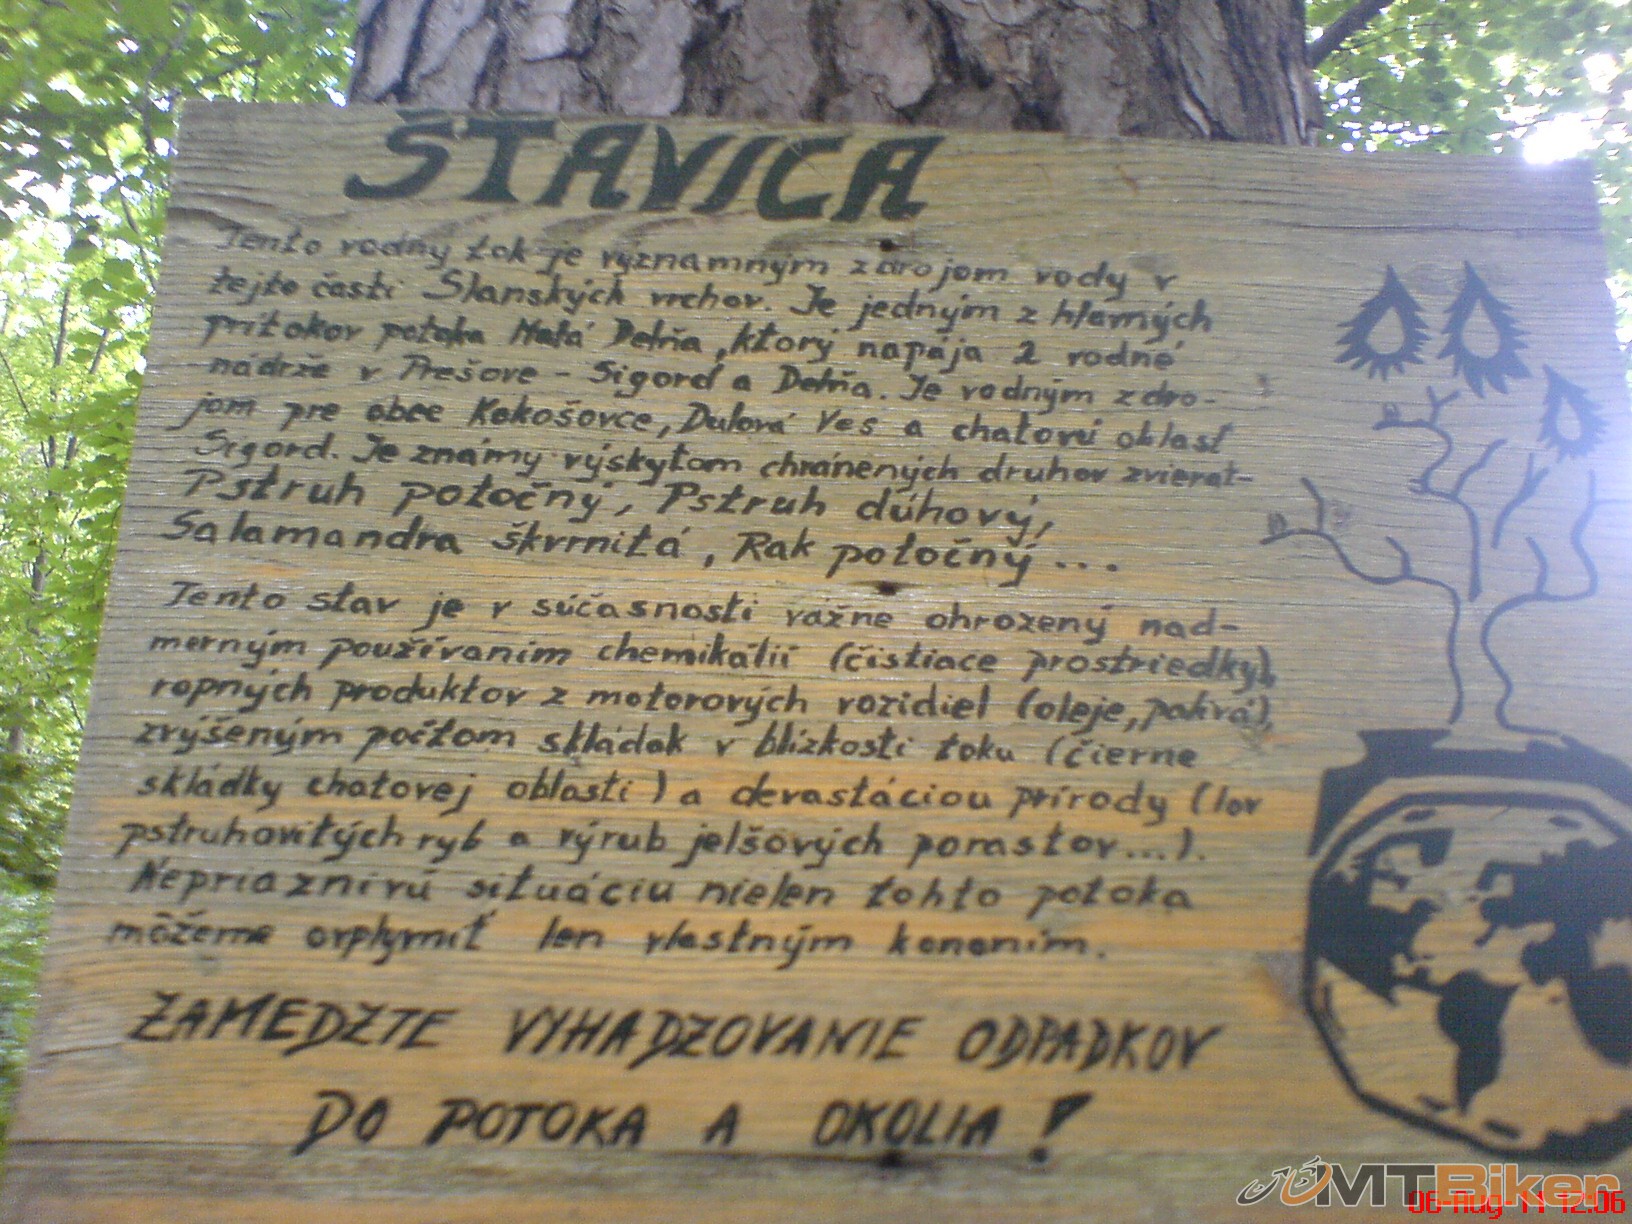 ŠTAVICA
Tento vodný tok je významným zdrojom vody v
tejto časti Slanských vrchov. Je jedným z hlavných
prítokov potoka Malá Delňa, ktorý napája 2 vodné
nádrže v Prešove - Sigord a Delňa. Je vodným zdro-
jom pre obce Kokošovce, Dulová Ves a chatovú oblasť
Sigord. Je známy výskytom chránených druhov zvierat-
Pstruh potočný, Pstruh dúhový,
Salamandra škvrnitá, Rak potočný...
Tento stav je v súčasnosti vážne ohrozený nad-
merným používanim chemikálií (čistiace prostriedky),
ropných produktov z motorových vozidiel (oleje, palivá),
zvýšeným počtom skládok v blízkosti toku (čierne
skládky chatovej oblasti) a devastáciou prírody (lov
pstruhovitých rýb a výrub jelšových porastov...).
Nepriaznivú situáciu nielen tohto potoka
môžeme ovplyvniť len vlastným konaním.
ZAMEDZTE VYHADZOVANIE ODPADKOV
DO POTOKA A OKOLIA!
MTBiker
06-Aug-11 12:06